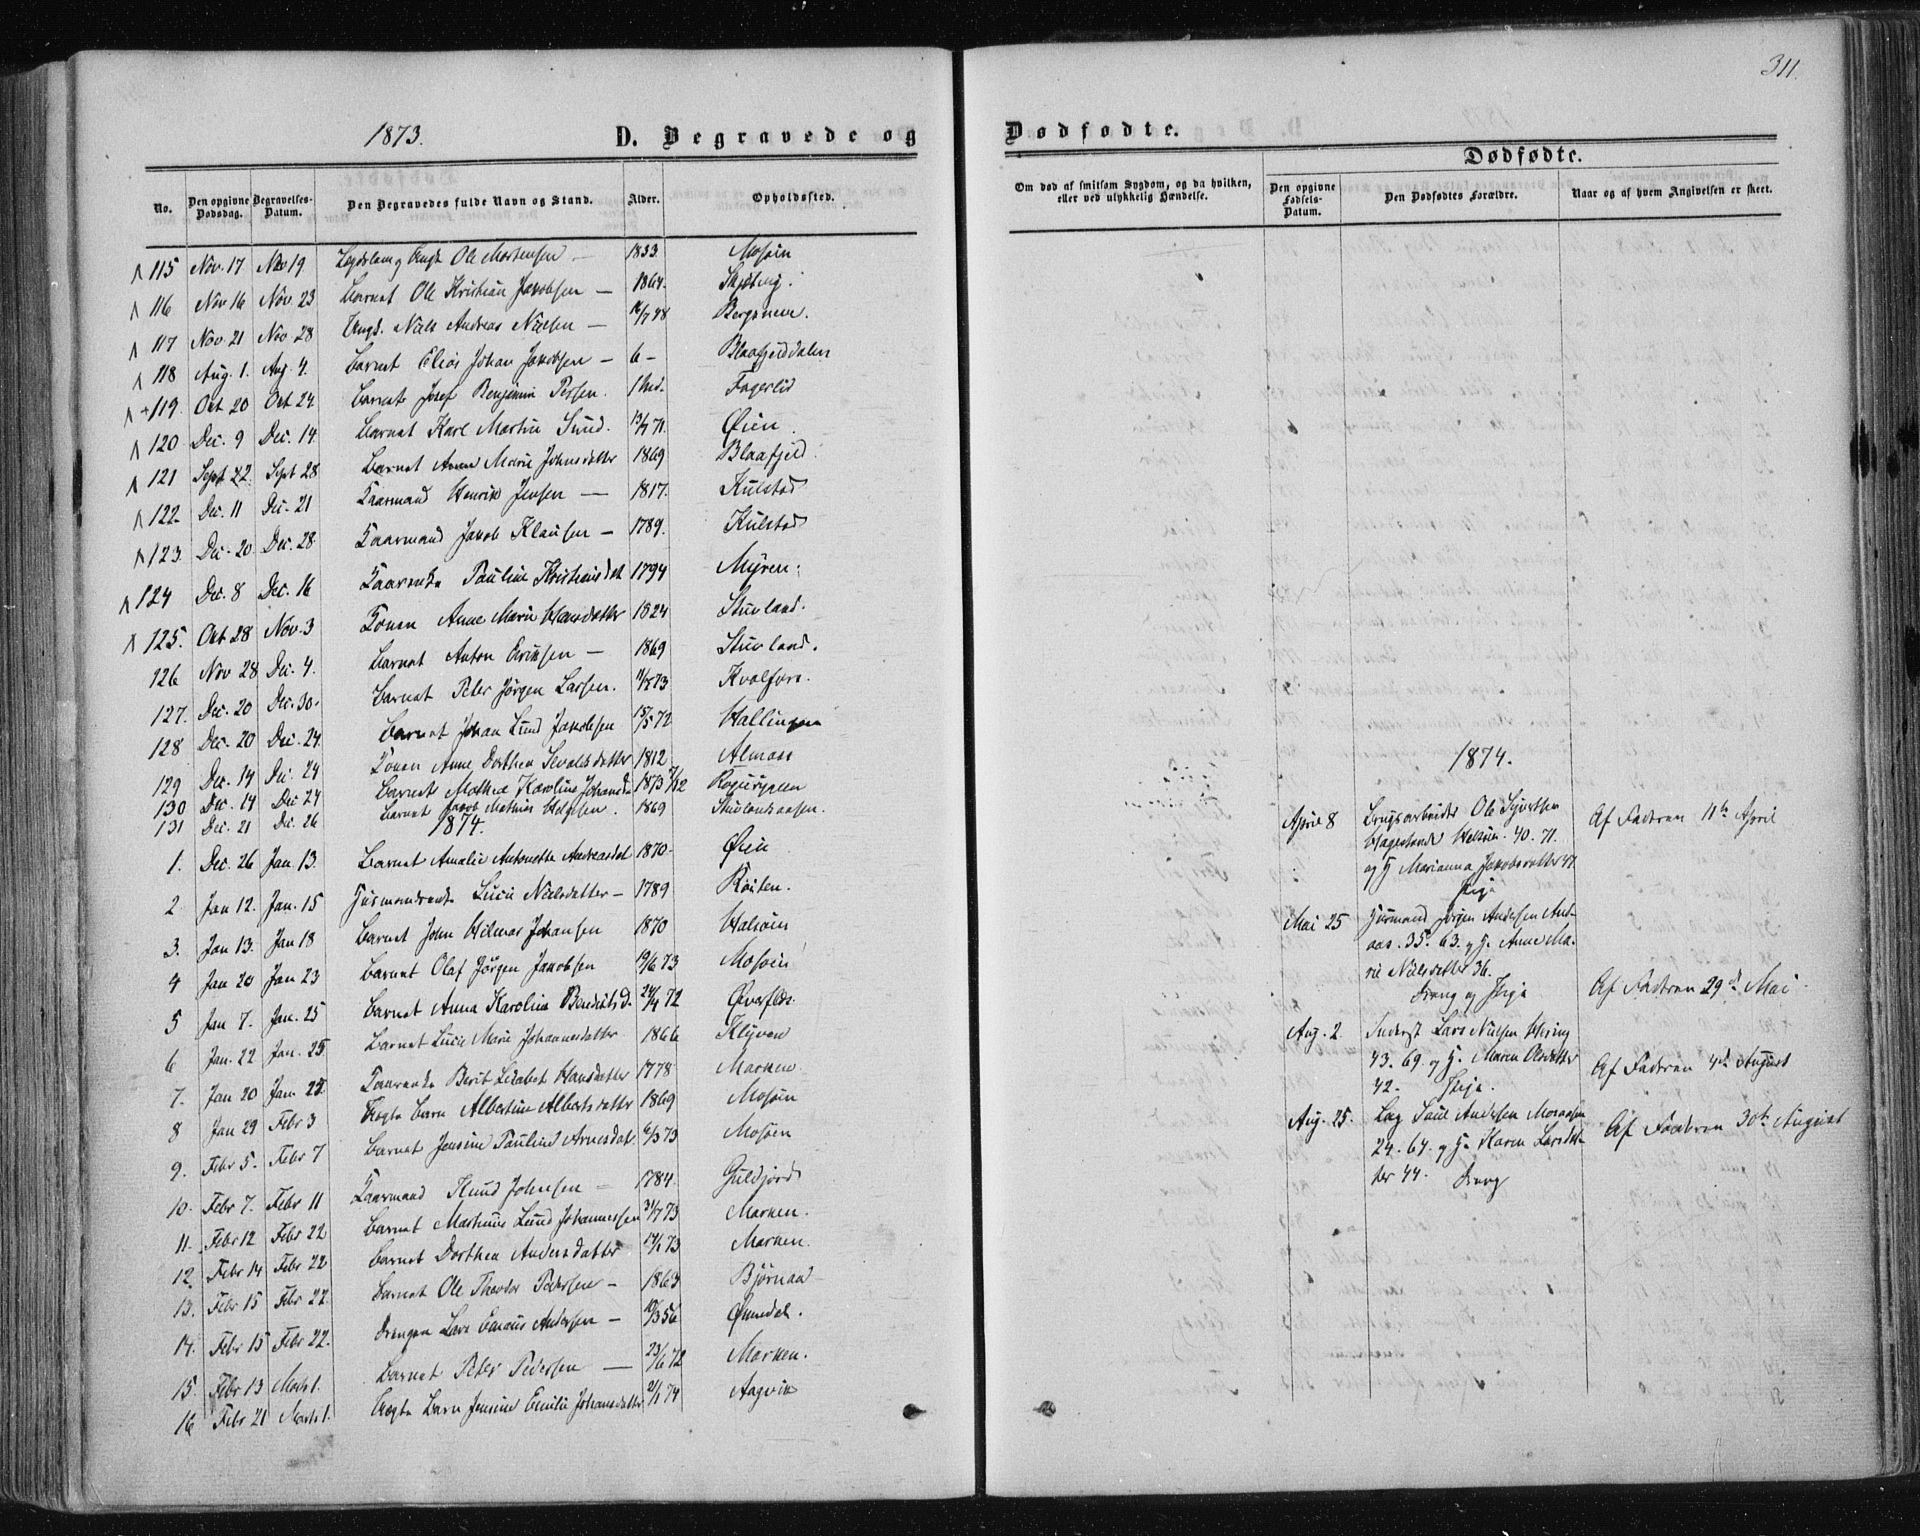 311.
1873.
D. Begravede og
Dødfødte.
Dødfødte.
No.
Den opgivne Dødsdag.
Begravelses-Datum.
Den Begravedes fulde Navn og Stand.
Alder.
Opholdssted.
Om død af smitsom Sygdom, og da hvilken, eller ved ulykkelig Hændelse.
Den opgivne Fødsels-Datum.
Den Dødfødtes Forældre.
Naar og af hvem Angivelsen er skeet.
115 Nov. 17 Nov 19 Ole Mortensen 1833. Mosøin
116 Nov 16 Nov. 23 Barnet Ole Kristian Jakobsen 1864.
117 Nov. 21 Nov 28 Ungk. Niels Andreas Nielsen 16/7 48 Bergsnew.
118 Aug. 1. Aug. 4. Barnet Elias Johan Jakobsen 6 Blaafjelddalen
119. Oct 20 Oct. 24 Barnet Josef Benjamin Persen. 1 Md. Fagerlid
120 Dec. 9 Dec. 14 Barnet Karl Martin Sund. 13/7 71. Øien
121 Sept 22. Sept 28 Barnet Anne Marie Johnsdatter 1869 Blaafjeld.
122. Dec. 11 Dec. 21 Kaarmand Henrik Jensen 1817. Kulstad
123. Dec. 20 Dec. 28 Kaarmand Jakob Klausen 1789. Kulstad
124 Dec. 8 Dec. 16 Kaarenke Pauline Kristiansdat 1794 Myren.
125. Oct 28 Nov. 3 Konen Anne Marie Hansdatter 1824 Stuvland.
126 Nov 28 Dec. 4. Barnet Anton Eriksen 1869 Stuvland.
127. Dec. 20 Dec. 30. Barnet Peter Jørgen Larsen. 11/8 73 Kvalfors.
128 Dec. 20 Dec. 24 Barnet Johan Lund Jakobsen 15/5 72 Hallingen
129 Dec. 14 Dec. 24 Konen Anne Dorthea Sevalsdatter 1812 Almaas
130 Dec. 14 Dec 24 Barnet Mathea Karoline Johansd 1873
131 Dec. 21 Dec. 26 Barnet Jakob Mathias 1869 Stuvlandsaasen.
1874.
1. Dec. 26 Jan. 13. Barnet Amalie Antonette Andreasdat 1870 Øien
2 Jan 12. Jan. 15 Husmandsenke Lucie Nielsdatter 1789.
3. Jan 13. Jan 18 Barnet John Hilmar Johansen 1870 Halsøin
4 Jan 20 Jan 23 Barnet Olaf Jørgen Jakobsen 19/6 73 Mosøin
5 Jan 7. Jan. 25 Barnet Anna Karolina 24/4 72
6 Jan. 22 Jan. 25 Barnet Lucie Marie Johannesdatter 1866
7. Jan 20 Jan. Kaarenke Berit Lisabet Hansdatter 1778 Marken.
8 Jan 29 Febr 3 Uægte Barn Albertine Albertsdatter 1869 Mosøin
9. Febr 5. Febr 7 Barnet Jensine Pauline Arnesdat. 6/3 73 Mosøin
10. Febr 7. Febr 11 Kaarmand Knud Johnsen 1784. Guldjord
11. Febr 12 Febr 22 Barnet Martinus Lund Johannessen 31/7 73 Marken.
12. Febr 14 Febr 22 Barnet Dorthea Andersdatter 14/1 73 Marken.
13. Febr 15 Febr 22. Barnet Ole Theodor Pedersen 1863 Bjørnaa
14. Febr 15 Febr 22. Drengen Lars Andersen 10/3 56
15. Febr 13 Marts 1. Barnet Peter Pedersen 23/6 72 Marken.
16 Febr 21 Marts 1. Uægte Barn Jensine Emilie Johansdatter 2/1 74 Aagvik
1874.
April 8 Brugsarbeider Ole Sjurtsen Af Faderen 11te April
40. 71.
og H. Marianna Jakobsdatter 47.
Pige
Mai 25 Husmand Jørgen Andersen And-
aas. 35. 63. og H. Anne Ma-
rie Nielsdatter 36.
Dreng og Pige Af Faderen 29de Mai
Aug. 2. Inderst Lars Nielsen
43. 69. og H. Maren Olsdatter
42. Pige. Af Faderen 4de August
Aug. 25. Andersen Moraasen
24. 64. og H. Karen Larsdat-
ter 44. Dreng Af Faderen 30te August